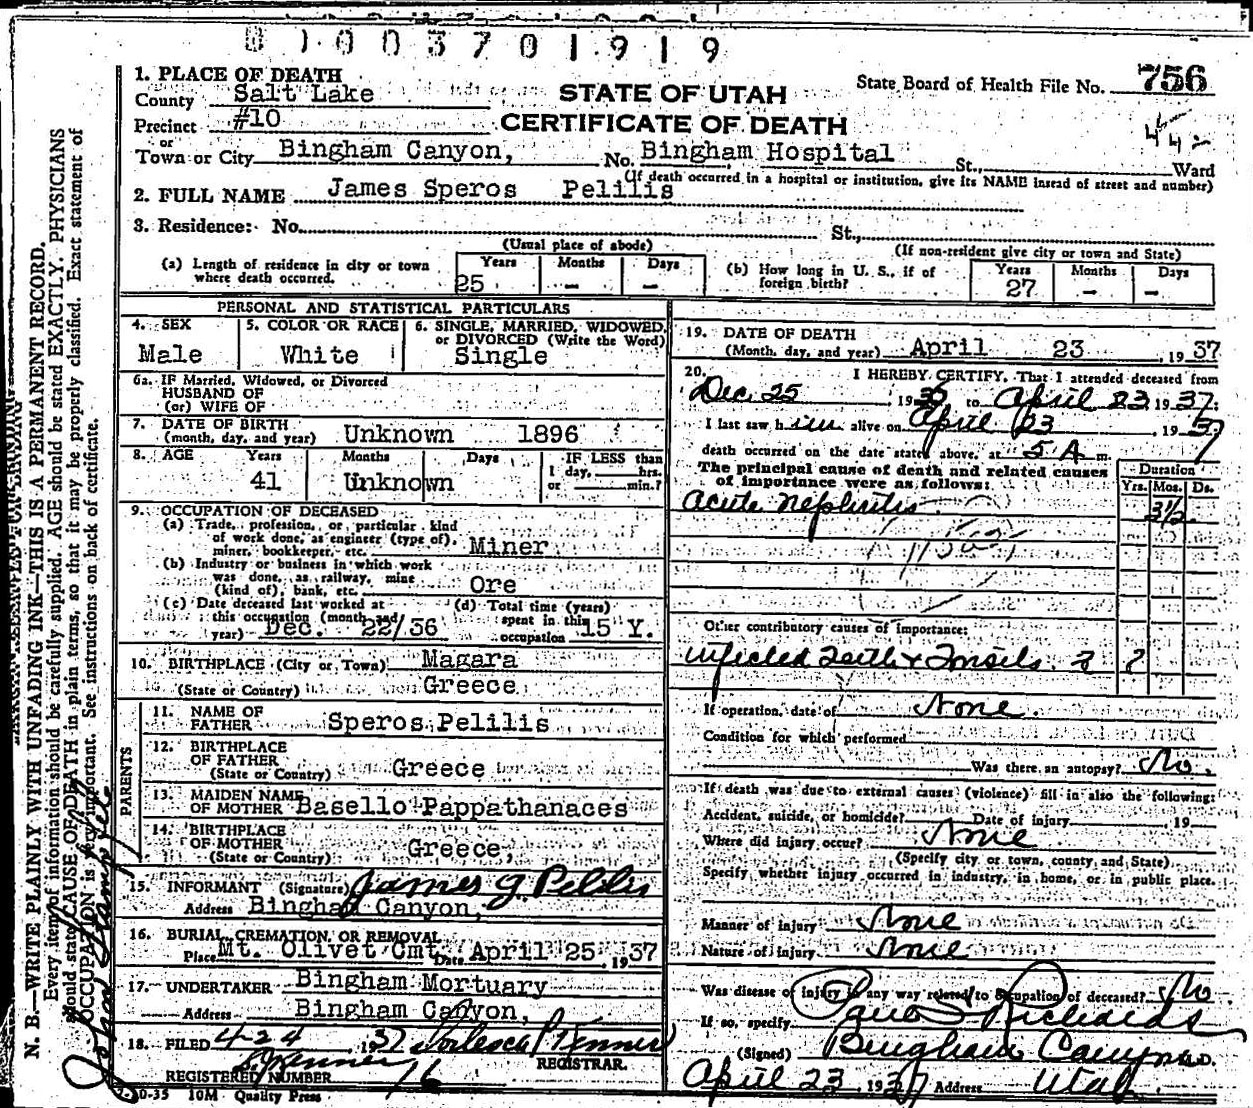 01003701919
1. PLACE OF DEATH
County Salt Lake
Precinct #10
or
Town or City Bingham Canyon, No. Bingham Hospital St., Ward
STATE OF UTAH
CERTIFICATE OF DEATH
State Board of Health File No. 756
(If death occurred in a hospital or institution, give its NAME instead of street and number)
2. FULL NAME James Speros Pelilis
3. Residence: No. St.,
(Usual place of abode) (If non-resident give city or town and State)
(a) Length of residence in city or town where death occurred. Years 25 Months - Days -
(b) How long in U. S., if of foreign birth? Years 27 Months - Days -
PERSONAL AND STATISTICAL PARTICULARS
4. SEX Male
5. COLOR OR RACE White
6. SINGLE, MARRIED, WIDOWED, or DIVORCED (Write the Word) Single
6a. IF Married, Widowed, or Divorced
HUSBAND OF
(or) WIFE OF
7. DATE OF BIRTH
(month, day, and year) Unknown 1896
8. AGE Years 41 Months Unknown Days IF LESS than 1 day, hrs. or min.?
9. OCCUPATION OF DECEASED
(a) Trade, profession, or particular kind
of work done, as engineer (type of),
miner, bookkeeper, etc. Miner
(b) Industry or business in which work
was done, as railway, mine
(kind of), bank, etc. Ore
(c) Date deceased last worked at
this occupation (month and
year) Dec. 22/36
(d) Total time (years)
spent in this
occupation 15 Y.
10. BIRTHPLACE (City or Town) Magara
(State or Country) Greece
PARENTS
11. NAME OF
FATHER Speros Pelilis
12. BIRTHPLACE
OF FATHER
(State or Country) Greece
13. MAIDEN NAME
OF MOTHER Basello Pappathanaces
14. BIRTHPLACE
OF MOTHER
(State or Country) Greece,
15. INFORMANT (Signature) James G. Pelilis
Address Bingham Canyon,
16. BURIAL, CREMATION OR REMOVAL
Place Mt. Olivet Cmt. Date April 25, 1937
17. UNDERTAKER Bingham Mortuary
Address Bingham Canyon,
18. FILED 4-24 1937
REGISTRAR.
REGISTERED NUMBER 76
10M Quality Press
19. DATE OF DEATH
(Month, day, and year) April 23, 1937
20. I HEREBY CERTIFY, That I attended deceased from
Dec. 25 to April 23 1937.
I last saw him alive on April 23, 1937
death occurred on the date stated above, at 5 A m.
The principal cause of death and related causes
of importance were as follows:
Duration
Yrs. Mos. Ds.
Acute Nephritis 3½
Other contributory causes of importance:
Infected Teeth & Tonsils ? ?
If operation, date of None
Condition for which performed
Was there an autopsy? No.
If death was due to external causes (violence) fill in also the following:
Accident, suicide, or homicide? Date of injury 19
Where did injury occur? None
(Specify city or town, county, and State)
Specify whether injury occurred in industry, in home, or in public place.
Manner of injury None
Nature of injury None
Was disease or injury in any way related to occupation of deceased? No
If so, specify
(Signed) Paul S Richards M.D.
Bingham Canyon
April 23, 1937 Address Utah
N. B.—WRITE PLAINLY WITH UNFADING INK—THIS IS A PERMANENT RECORD.
Every item of information should be carefully supplied. AGE should be stated EXACTLY. PHYSICIANS
should state CAUSE OF DEATH in plain terms, so that it may be properly classified. Exact statement of
OCCUPATION is very important. See instructions on back of certificate.